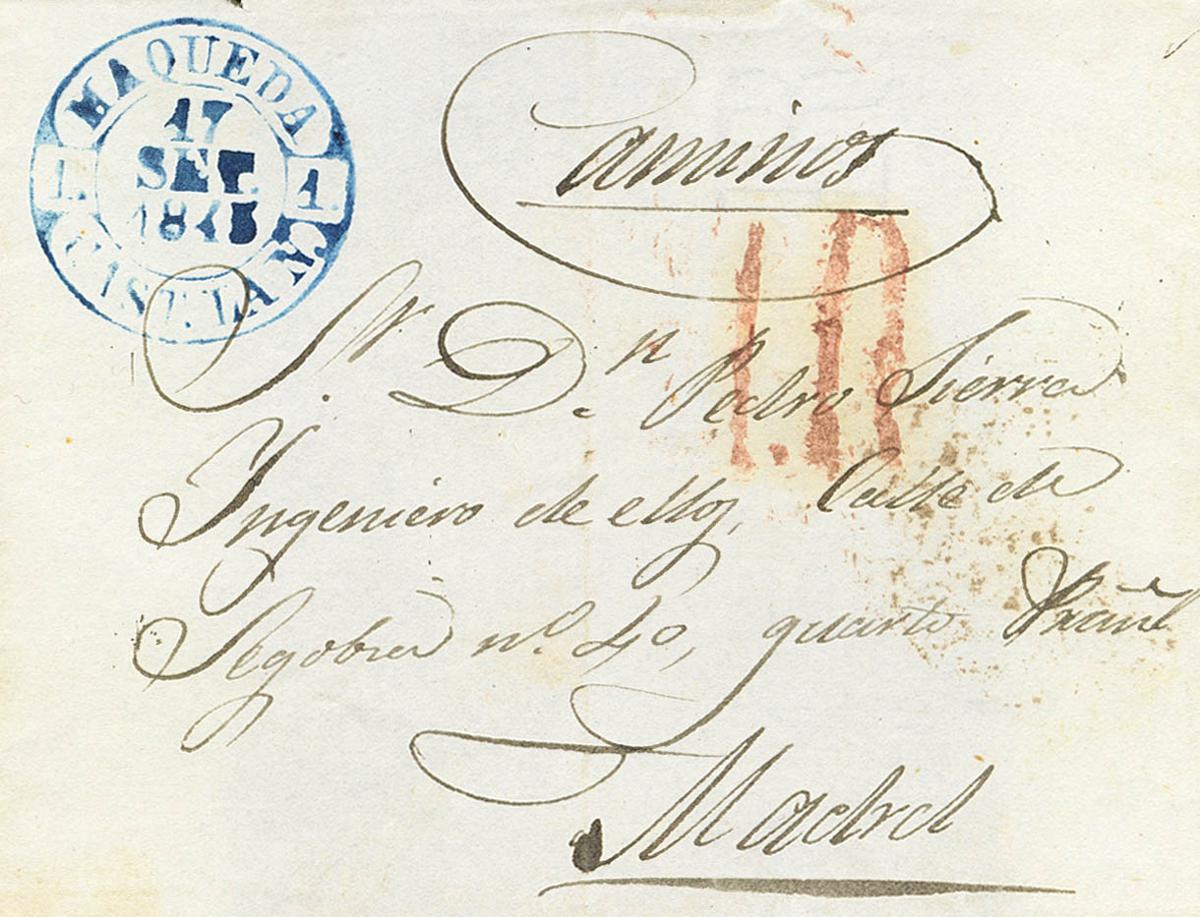 MAQUEDA
17
SET.
1845
1. 1.
CAST. LA N.
Caminos
1.R
Sr. Dn. Pedro Sierra
Ingeniero de ellos, Calle de
Segobia nº. 40, quarto
Madrd